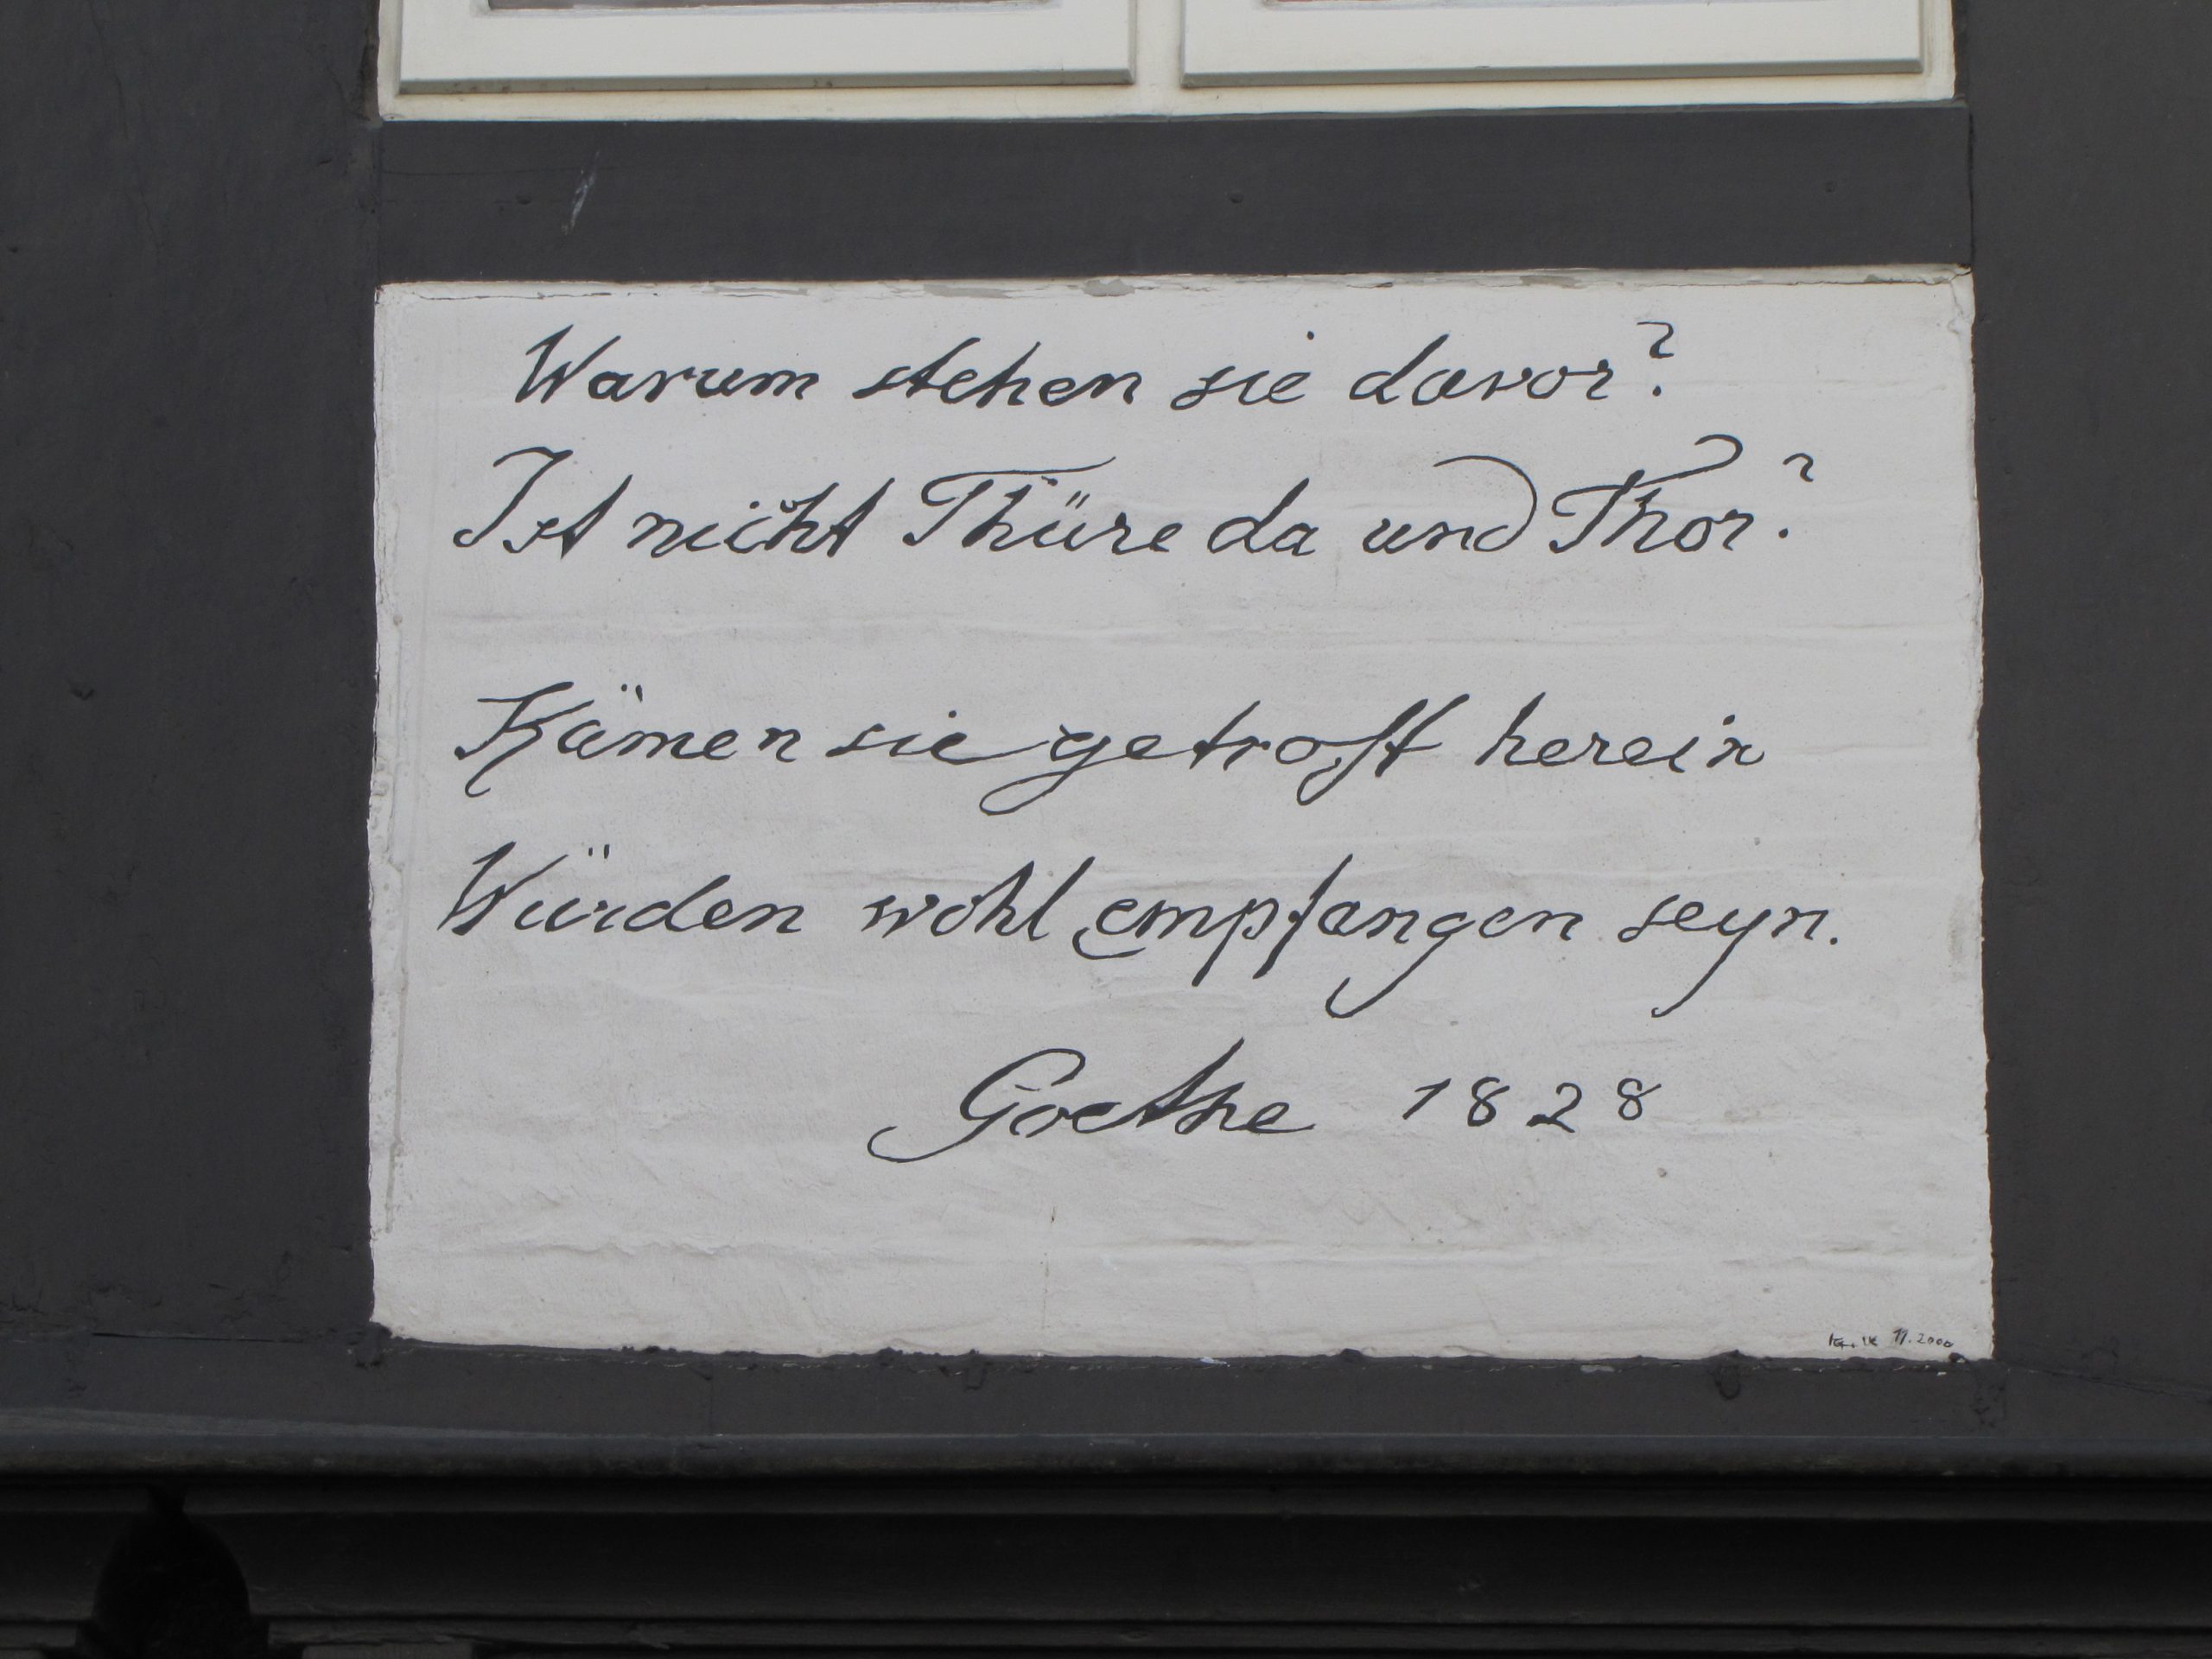 Warum stehen sie davor?
Ist nicht Thüre da und Thor?
Kämen sie getrost herein
Würden wohl empfangen seyn.
Goethe 1828
11.2000